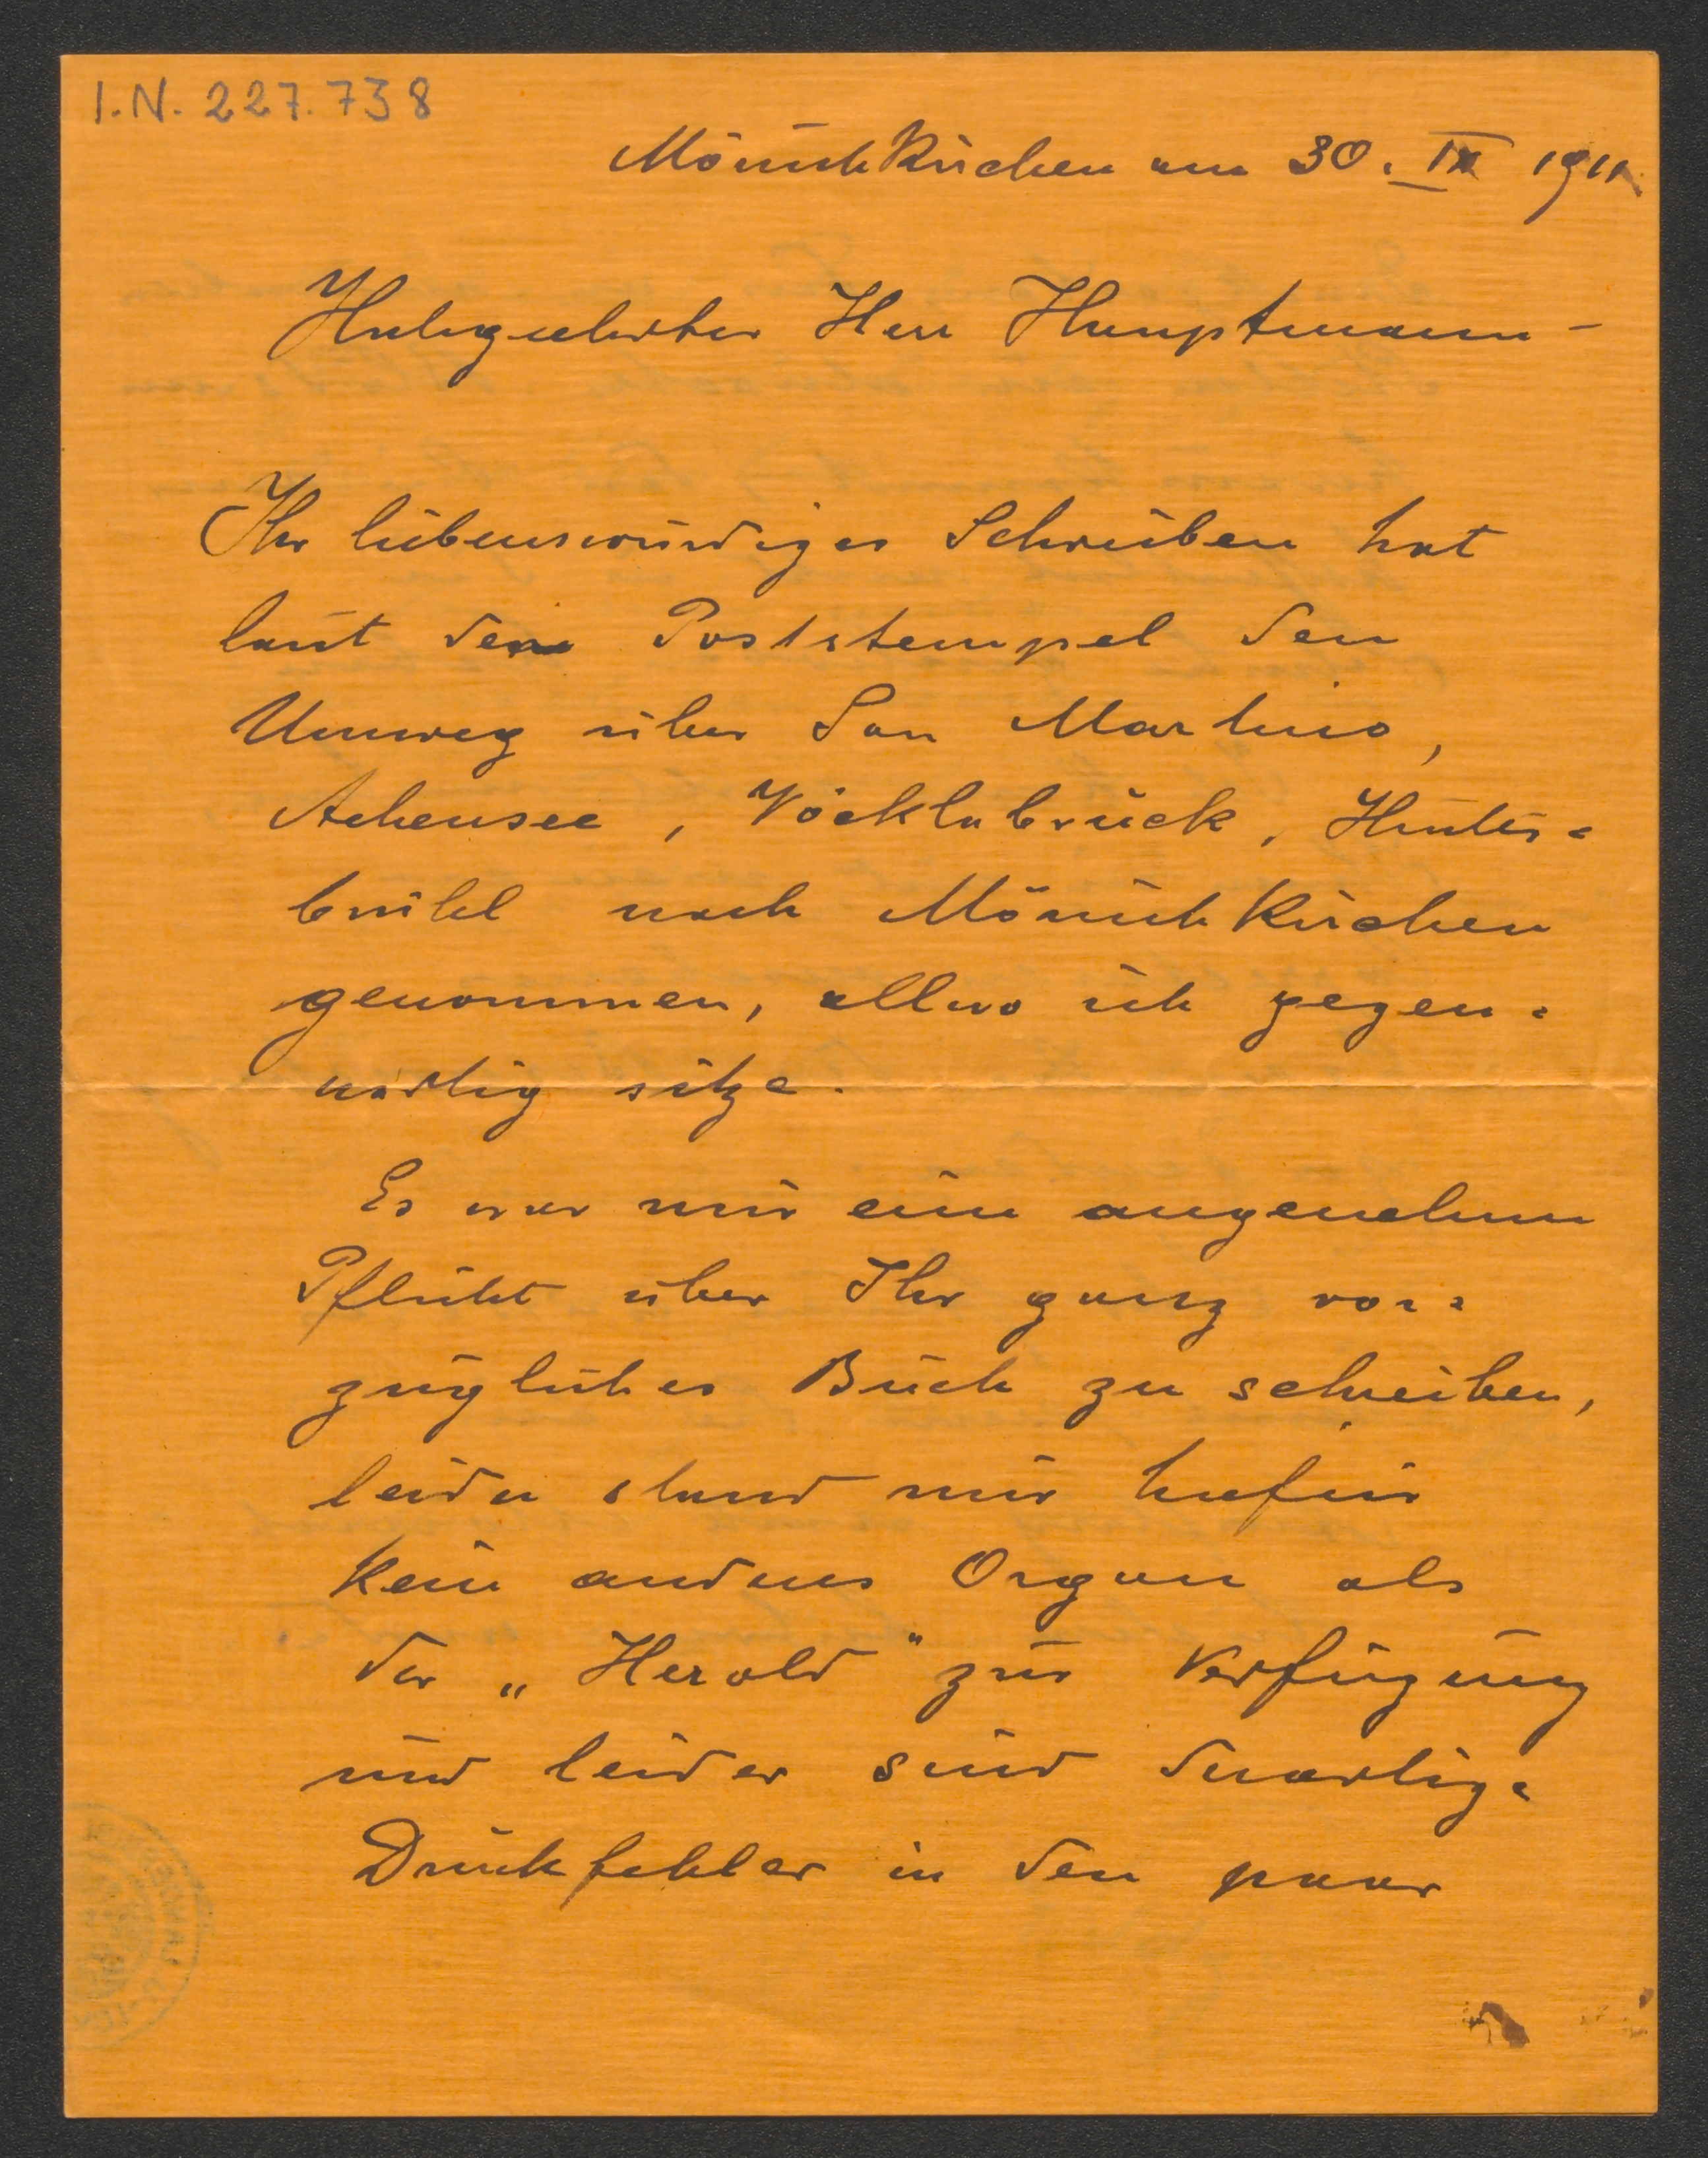 I.N. 227.738
Mönichkirchen am 30. IX 1911
Hochgeehrter Herr Hauptmann –
Ihr liebenswürdiges Schreiben hat
laut dem Poststempel den
Umweg über San Martino,
Achensee, Vöcklabrück, Hinter=
brühl nach Mönichkirchen
genommen, allwo ich gegen=
wärtig sitze.
Es war mir eine angenehme
Pflicht über Ihr ganz vor=
zügliches Buch zu schreiben,
leider stand mir hiefür
kein anderes Organ als
der „Herold" zur Verfügung
und leider sind derartige
Druckfehler in den paar